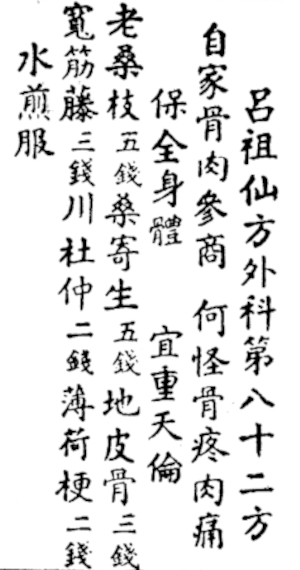 呂祖仙方外科第八十二方
自家骨肉參商 何怪骨疼肉痛
保全身體 宜重天倫
老桑枝五錢桑寄生五錢地皮骨三錢
寬筋藤三錢川杜仲二錢薄荷梗二錢
水煎服